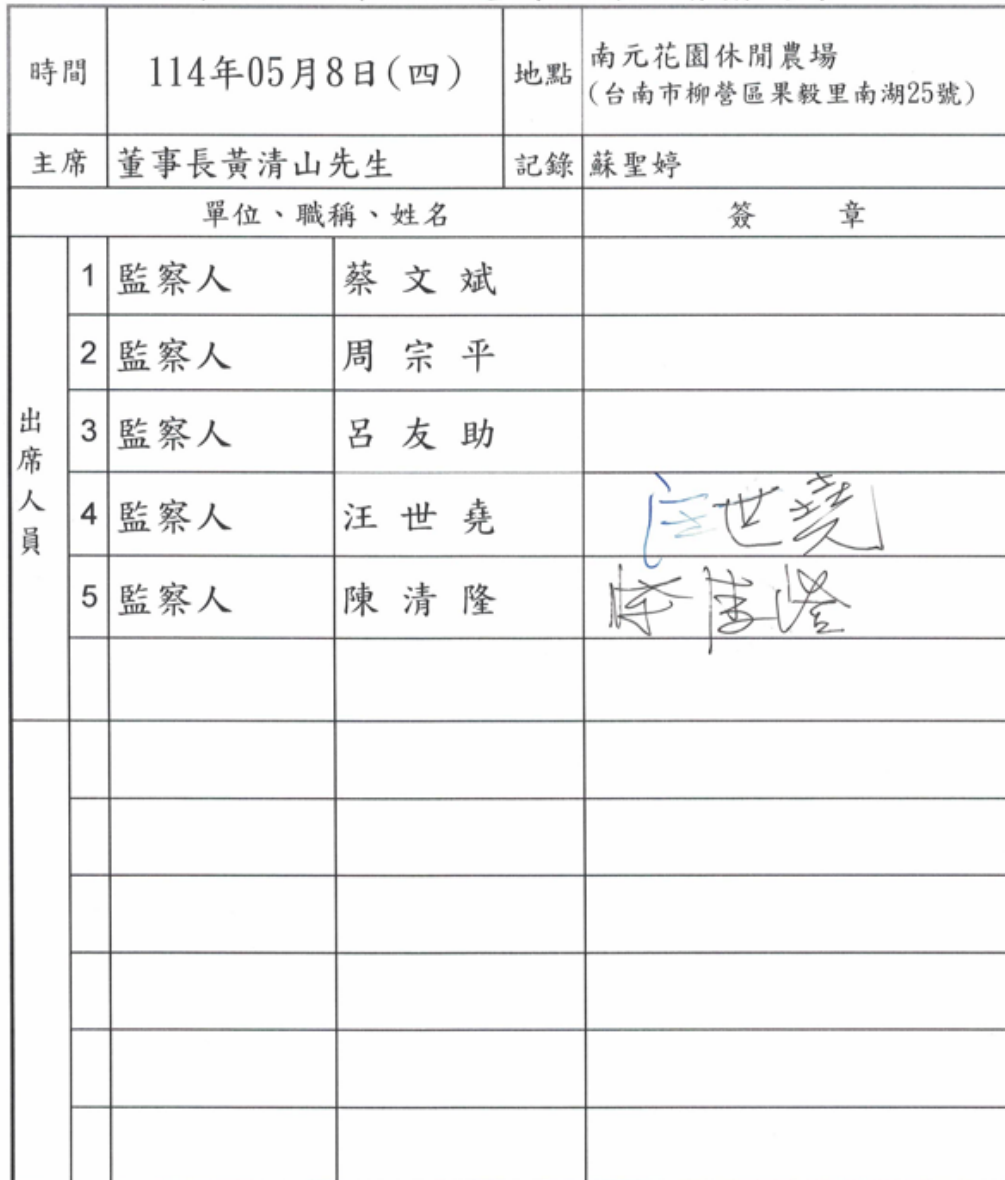 時間 114年05月8日(四) 地點 南元花園休閒農場
(台南市柳營區果毅里南湖25號)
主席 董事長黃清山先生 記錄 蘇聖婷
單位、職稱、姓名 簽 章
出席人員
1 監察人 蔡文斌
2 監察人 周宗平
3 監察人 呂友助
4 監察人 汪世堯 汪世堯
5 監察人 陳清隆 陳清隆